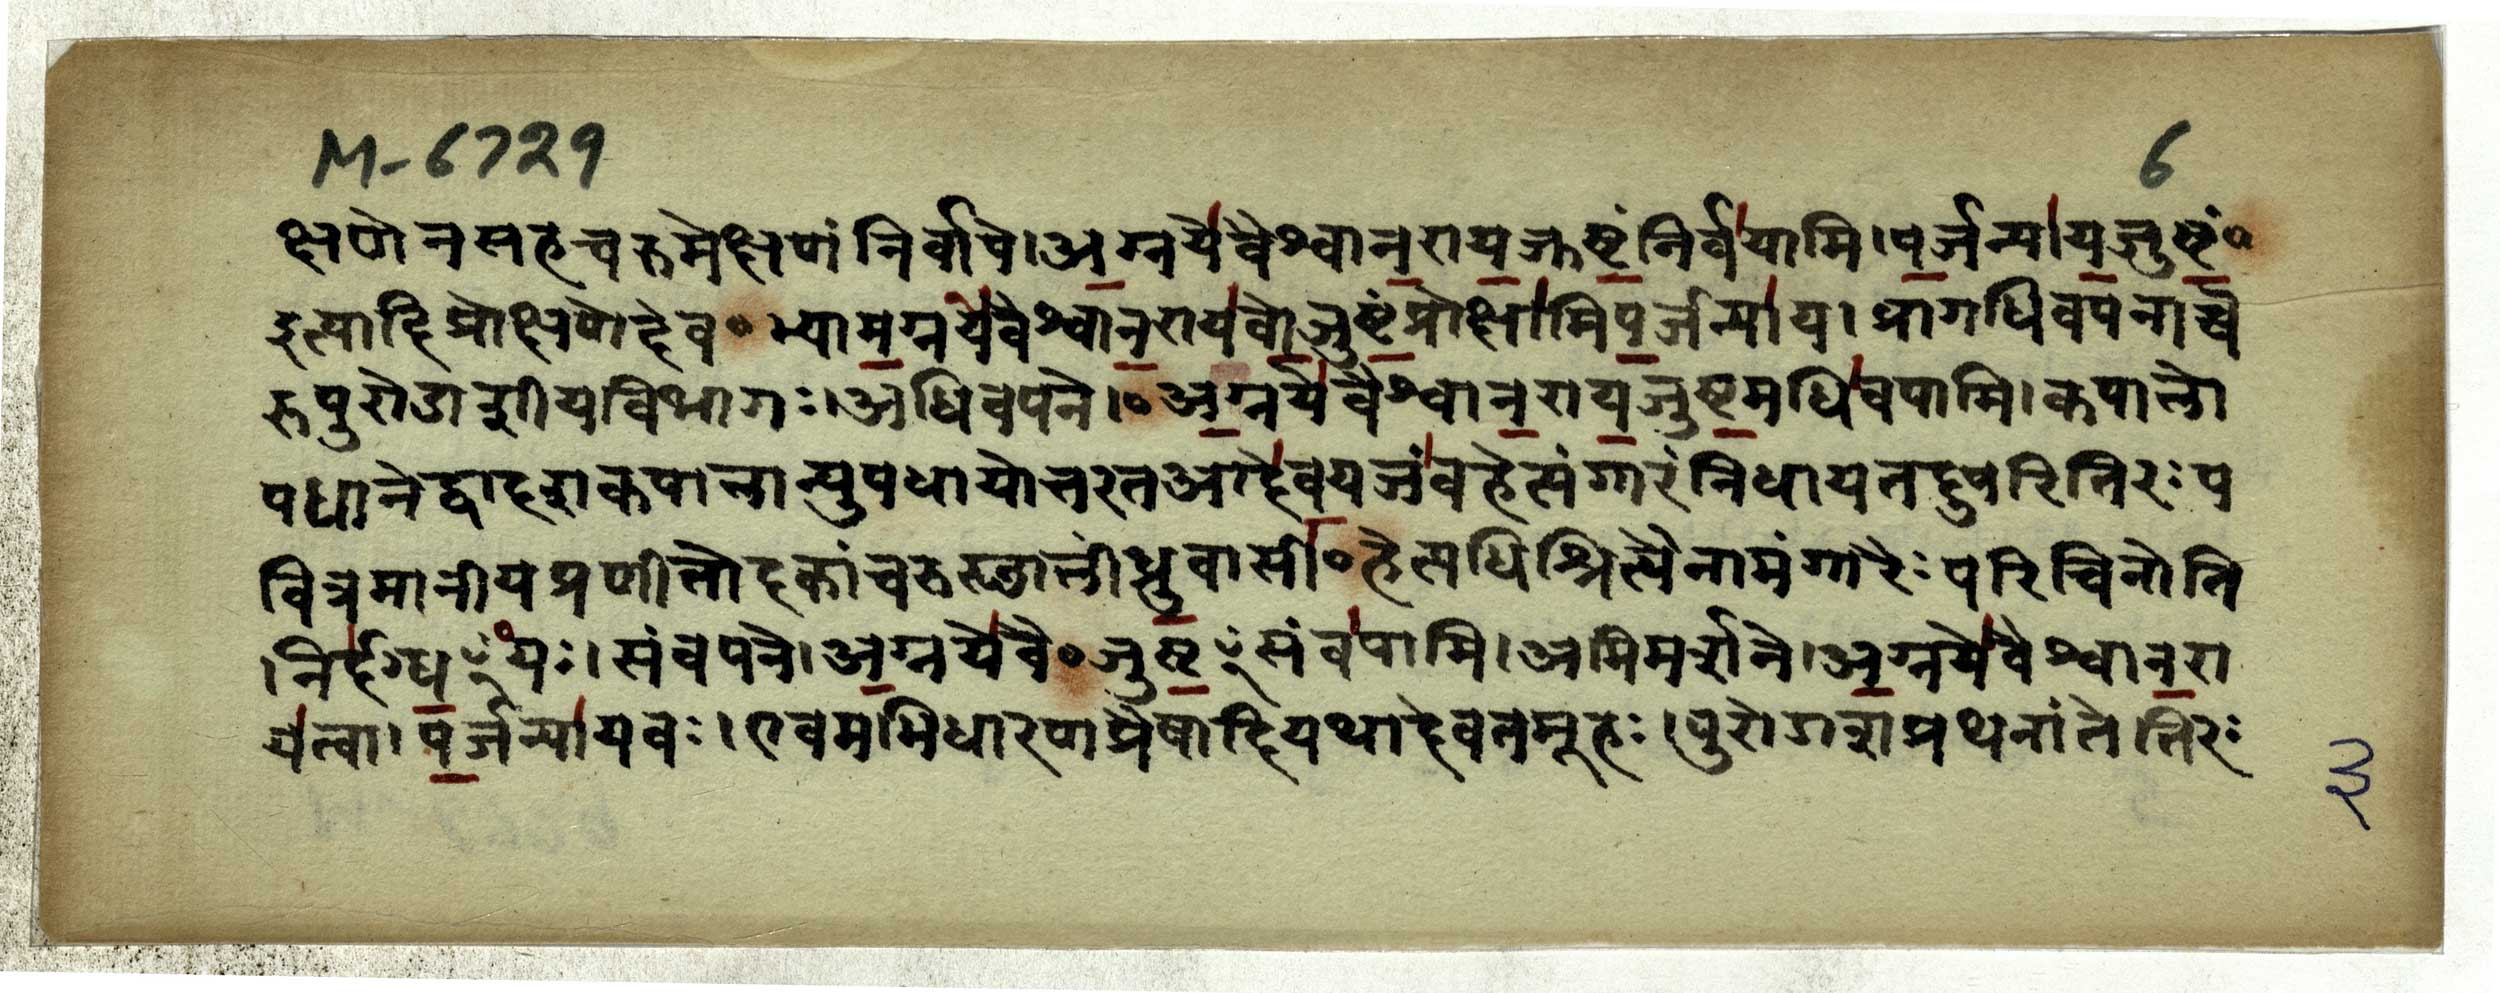 M-6729
6
क्षणेनसहचरुमेक्षणंनिर्वापे।अ॒ग्नये॑वैश्वान॒राय॒जुष्टं॒निर्व॑पामि।प॒र्जन्या॑य॒जुष्टं॒०
इत्यादिप्रोक्षणेदेव०भ्याम॒ग्नये॑वैश्वान॒राय॑वो॒जुष्टं॒प्रोक्षा॑मिप॒र्जन्या॑य।प्रागधिवपनाच्च
रुपुरोडाशीयविभागः।अधिवपने।०अ॒ग्नये॑वैश्वान॒राय॒जुष्ट॒मधि॑वपामि।कपालो
पधानेद्वादशकपालान्युपधायोत्तरतआदे॑व॒यजं॑वहेत्यंगारंनिधायतदुपरितिरःप
वित्रमानीयप्रणीतोदकांचरुस्थालींध्रु॒वासी०हेत्यधिश्रित्यैनामंगारैःपरिचिनोति
।निर्द॑ग्ध॒ꣳयः।संवपने।अ॒ग्नये॑वै०जुष्ट॒ꣳसंव॑पामि।अभिमर्शने।अ॒ग्नये॑वैश्वान॒रा
य॑त्वा।प॒र्जन्या॑यवः।एवमभिधारणप्रैषादियथादेवतमूहः।पुरोडाशप्रथनांतेतिरः
३